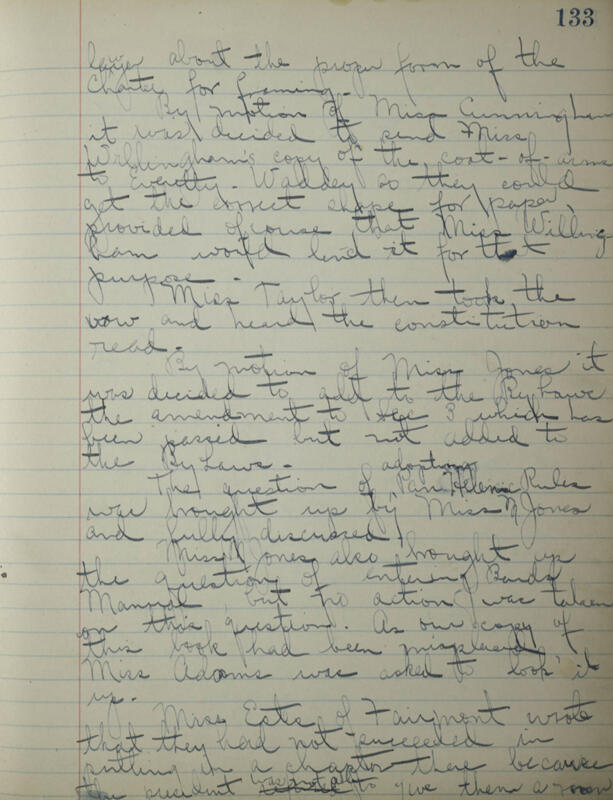 133
lawyer about the proper form of the
Charter for framing.
By motion of Miss Cunningham
it was decided to send Miss
Willingham's copy of the coat-of-arms
to Everett-Waddey so they could
get the correct shape for paper,
provided ofcourse that Miss Willing-
ham would lend it for that
purpose.
Miss Taylor then took the
vow and heard the constitution
read.
By motion of Miss Jones it
was decided to add to the By Laws
the amendment to 3 which has
been passed but not added to
the By Laws.
adopting
The question of Pan Helenic Rules
was brought up by Miss N Jones
and fully discussed.
Miss Jones also brought up
the question of entering Bairds
Manual but no action was taken
on this question. As our copy of
this book had been misplaced
Miss Adams was asked to look it
up.
Miss Estes of Fairmont wrote
that they had not succeeded in
putting in a chapter there because
was not able
the president to give them a room